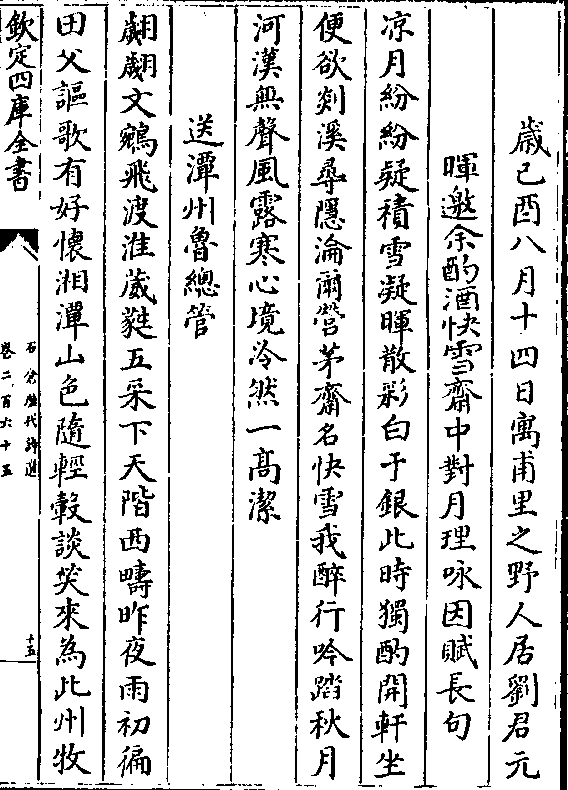 歳己酉八月十四日寓甫里之野人居劉君元
暉邀余酌酒快雪齋中對月理咏因賦長句
凉月紛紛疑積雪凝暉散彩白于銀此時獨酌開軒坐
便欲剡溪尋隱淪爾營茅齋名快雪我醉行吟踏秋月
河漢無聲風露寒心境泠然一高潔
送潭州魯總管
翩翩文鷁飛渡淮葳蕤五采下天階西疇昨夜雨初徧
田父謳歌有好懷湘潭山色隨輕轂談笑來為此州牧
欽定四庫全書
石倉歴代詩選
卷二百六十五
十五